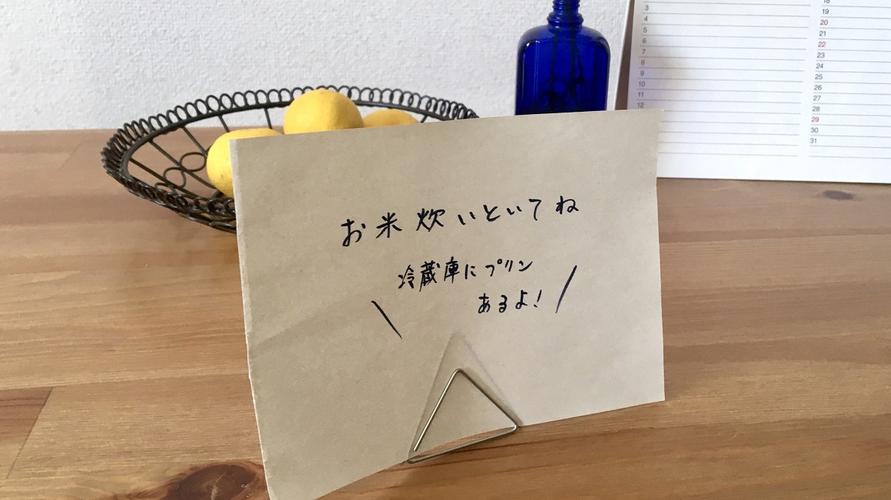 お米炊いといてね
冷蔵庫にプリン
あるよ!
3
4
5
6
7
8
9
10
11
12
18
19
20
21
22
23
24
25
26
27
28
29
30
31